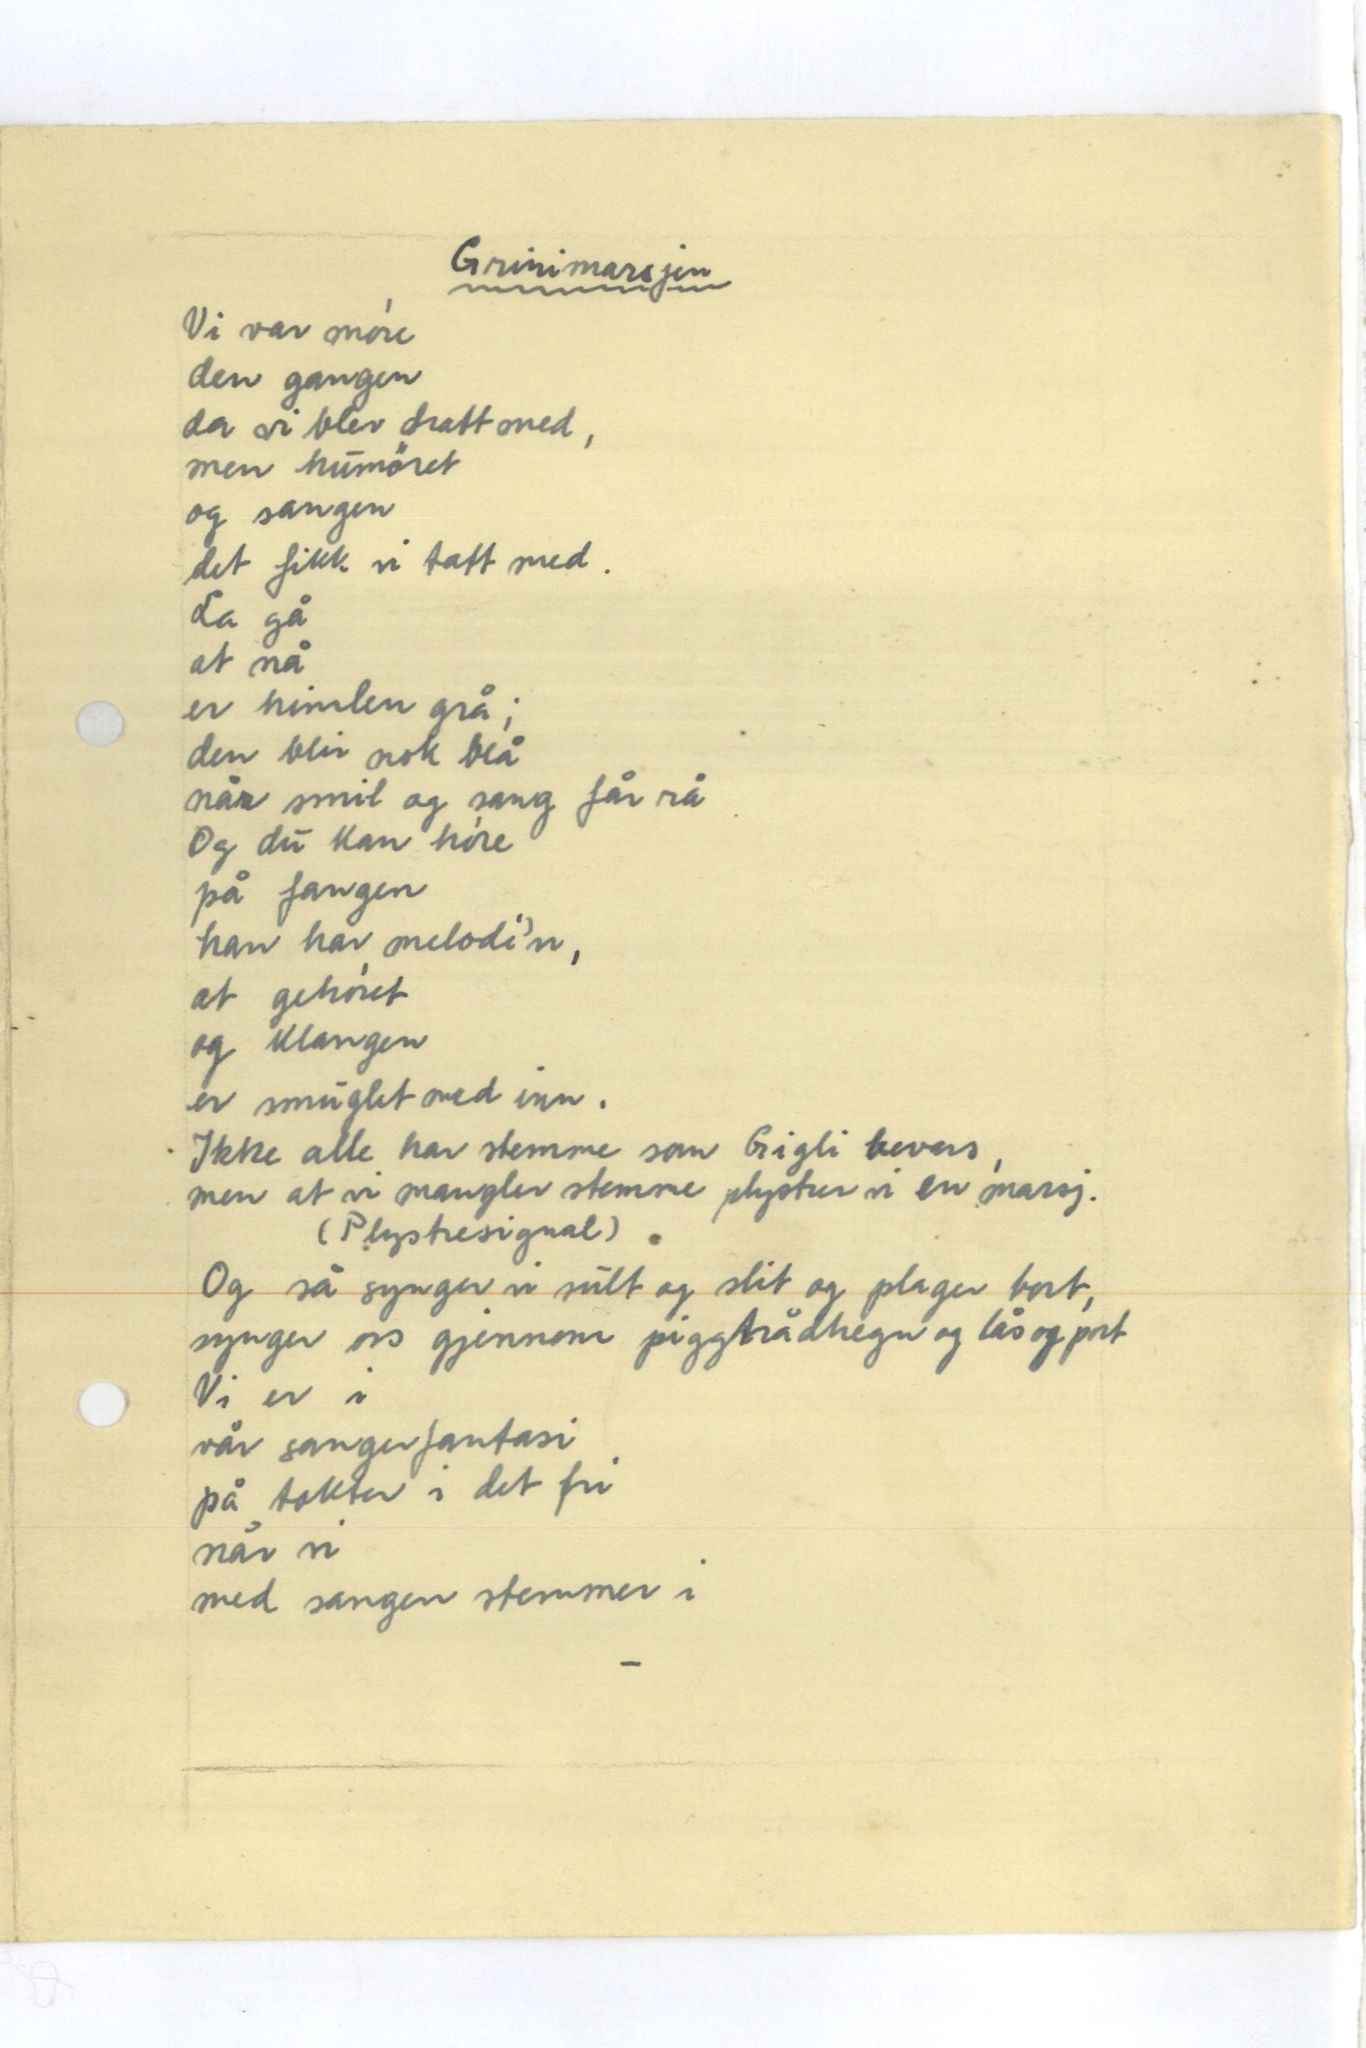 Grinimarsjen
Vi var móre
den gangen
da vi blev dratt med,
men humöret
og sangen
det fikk vi tatt med.
La gå
at nå
er himlen grå;
den blir nok blå
når smil og sang får rå
Og du kan hóre
på fangen
han har melodi'n,
at gehóret
og klangen
er smuglet med inn.
Ikke alle har stemme som Gigli bevars,
men at vi mangler stemme plystrer vi en marsj.
(Plystresignal).
Og så synger vi sult og slit og plager bort,
synger oss gjennom piggtrådhegn og lås og port
Vi er i
vår sangerfantasi
på tokter i det fri
når vi
med sangen stemmer i
-